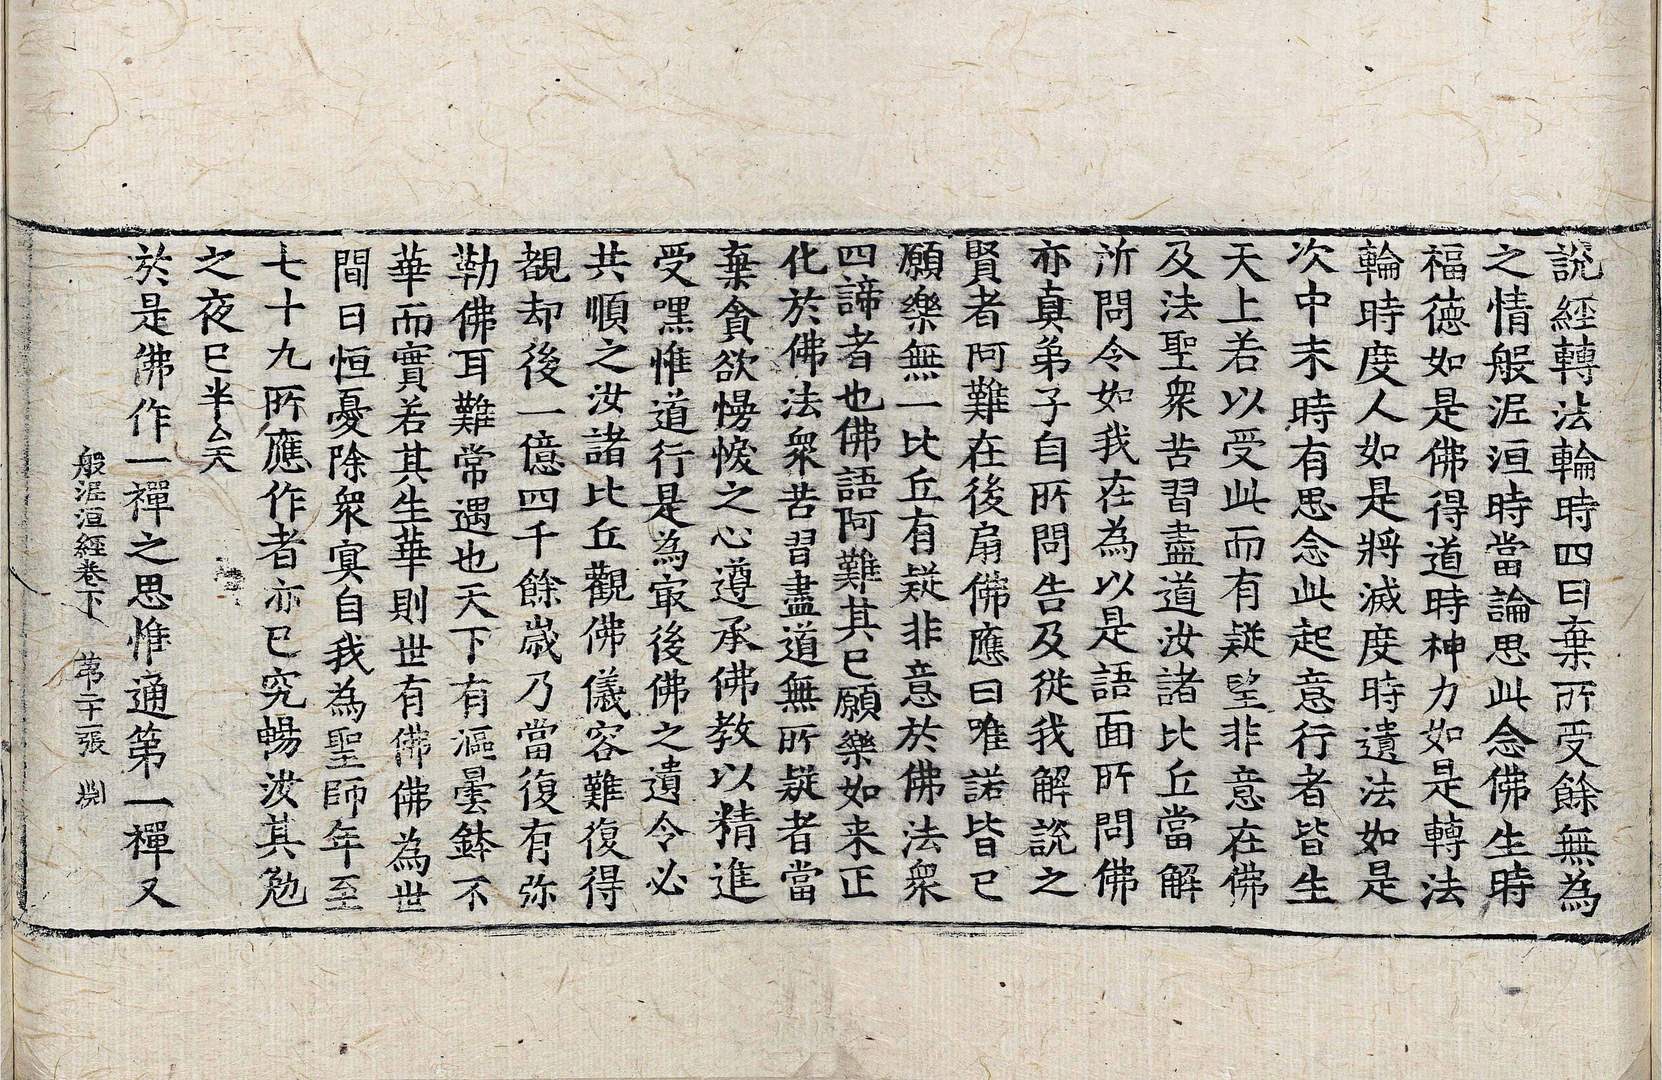 說經轉法輪時四曰棄所受餘無為
之情般泥洹時當論思此念佛生時
福德如是佛得道時神力如是轉法
輪時度人如是將滅度時遺法如是
次中末時有思念此起意行者皆生
天上若以受此而有疑望非意在佛
及法聖衆苦習盡道汝諸比丘當解
所問令如我在為以是語面所問佛
亦真弟子自所問告及從我解說之
賢者阿難在後扇佛應曰唯諾皆已
願樂無一比丘有疑非意於佛法衆
四諦者也佛語阿難其已願樂如来正
化於佛法衆苦習盡道無所疑者當
棄貪欲慢𢢔之心遵承佛教以精進
受嘿惟道行是為㝡後佛之遺令必
共順之汝諸比丘觀佛儀容難復得
覩却後一億四千餘歲乃當復有弥
勒佛耳難常遇也天下有漚曇鉢不
華而實若其生華則世有佛佛為世
間日恒憂除衆冥自我為聖師年至
七十九所應作者亦已究暢汝其勉
之夜已半矣
於是佛作一禪之思惟通第一禪又
般泥洹經卷下 苐二十張 㓼